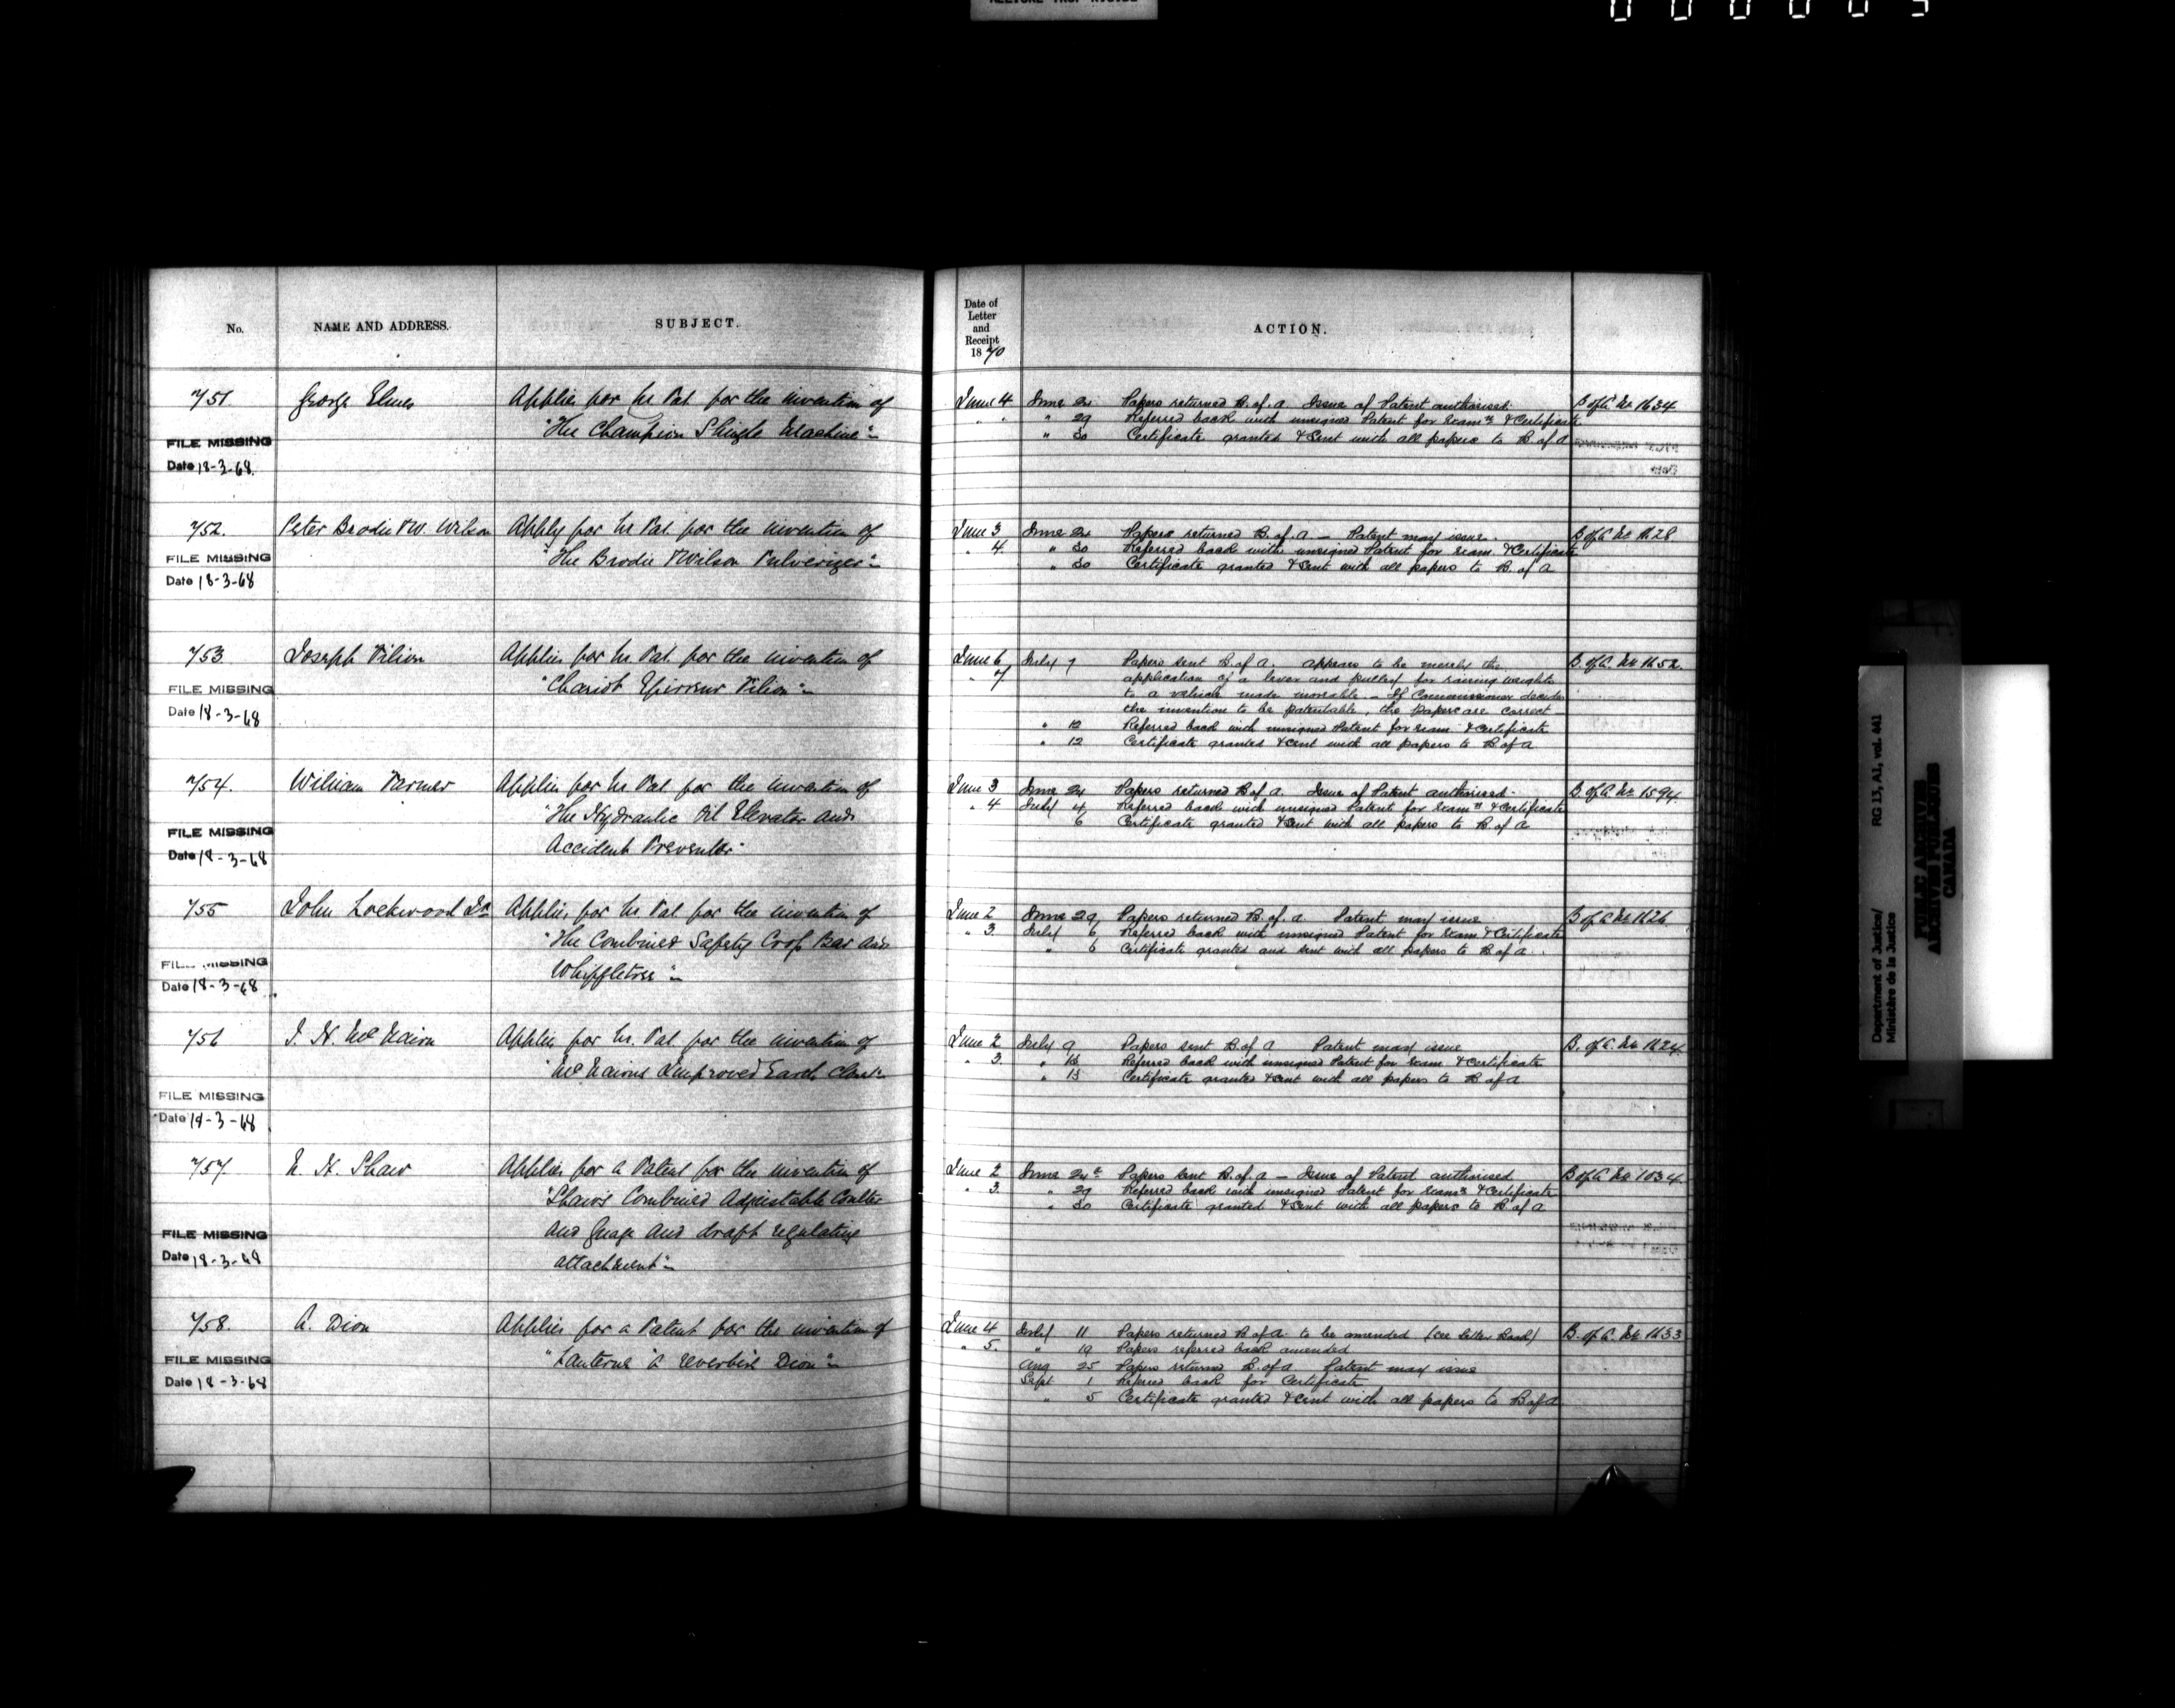 No.
NAME AND ADDRESS.
SUBJECT.
751
George Elmes
Applies for Ls Pat. for the invention of
"The Champion Shingle Machine"
FILE MISSING
Date 18-3-68
752.
Peter Brodie & W. Wilson
Apply for Ls Pat. for the invention of
"The Brodie & Wilson Pulverizer"
FILE MISSING
Date 18-3-68
753
Joseph Vilion
Applies for Ls Pat. for the invention of
"Chariot Vilion"
FILE MISSING
Date 18-3-68
754.
William Farmer
Applies for Ls Pat for the invention of
"The Hydraulic Oil Elevator and
Accident Preventor"
FILE MISSING
Date 18-3-68
755
John Lockwood Jr
Applies for Ls Pat for the invention of
"The Combined Safety Crop Bar and
Whippletree"
FILE MISSING
Date 18-3-68
756
J. H. McNairn
Applies for Ls. Pat. for the invention of
"McNairns Improved Earth Closet"
FILE MISSING
Date 18-3-68
757
N. H. Shaw
Applies for a Patent for the invention of
"Shaw's Combined Adjustable Coulter
and Guage and draft regulating
attachment"
FILE MISSING
Date 18-3-68
758.
A. Dion
Applies for a Patent for the invention of
"Lanterne a reverbère Dion"
FILE MISSING
Date 18-3-68
Date of
Letter
and
Receipt
1870
ACTION.
June 4 June 24 Papers returned B. of. A Issue of Patent authorised. B of A No 1634
" " " 29 Referred back with unsigned Patent for Exam & Certificate
" 30 Certificate granted & sent with all papers to B of A
June 3 June 24 Papers returned B. of. A – Patent may issue. B of A No 1628
" 4. " 30 Referred back with unsigned Patent for Exam. & Certificate
" 30 Certificate granted & sent with all papers to B. of A
June 6 July 7 Papers sent B. of A. appears to be merely the B. of A No 1652.
" 7 application of a lever and pulley for raising weights
to a vehicle made movable – If Commissioner decides
the invention to be patentable, the papers are correct
" 12 Referred back with unsigned Patent for Exam & Certificate
" 12 Certificate granted & sent with all papers to B of A
June 3 June 24 Papers returned B. of A Issue of Patent authorised. B. of A No 1594.
" 4 July 4 Referred back with unsigned Patent for Exam & Certificate
6 Certificate granted & sent with all papers to B of A
June 2 June 29 Papers returned B. of. A. Patent may issue B of A No 1626
" 3. July 6 Referred back with unsigned Patent for Exam & Certificate
" 6 Certificate granted and sent with all papers to B of A
June 2 July 9 Papers sent B. of A Patent may issue B. of A. No 1624.
" 3. " 13 Referred back with unsigned Patent for Exam & Certificate
" 13 Certificate granted & sent with all papers to B of A
June 2 June 24th Papers sent B. of. A – Issue of Patent authorised B of A No 1034.
" 3. " 29 Referred back with unsigned Patent for Exam & Certificate
" 30 Certificate granted & sent with all papers to B. of A
June 4 July 11 Papers returned B of A to be amended (see Letter Book) B. of A. No 1633
" 5. " 19 Papers referred back amended
Aug 25 Papers returned B. of A Patent may issue
Sept 1 Referred back for Certificate
" 5 Certificate granted & sent with all papers to B of A
Department of Justice/ RG 13, A1, vol. 441
Ministère de la Justice
PUBLIC ARCHIVES
ARCHIVES PUBLIQUES
CANADA